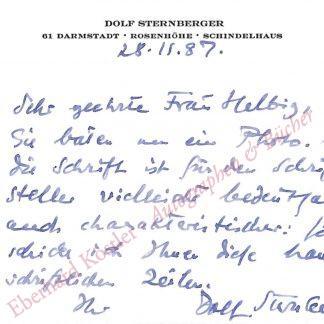 DOLF STERNBERGER
61 DARMSTADT · ROSENHÖHE · SCHINDELHAUS
28.11.87.
Sehr geehrte Frau Helbig,
Sie baten um ein Photo.
die Schrift ist für den Schrift
steller vielleicht bedeutsa
auch charakteristischer: so
schicke ich Ihnen diese han
schriftlichen Zeilen.
Ihr Dolf Sternbe
Eberhard Köstler Autographen & Bücher